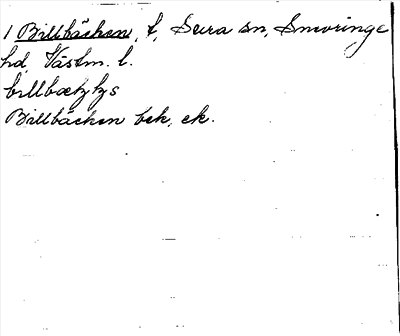 1 Billbäcken, t, Sura sn, Snevringe
hd, Västm. l.
Billbäcken bek, ek.